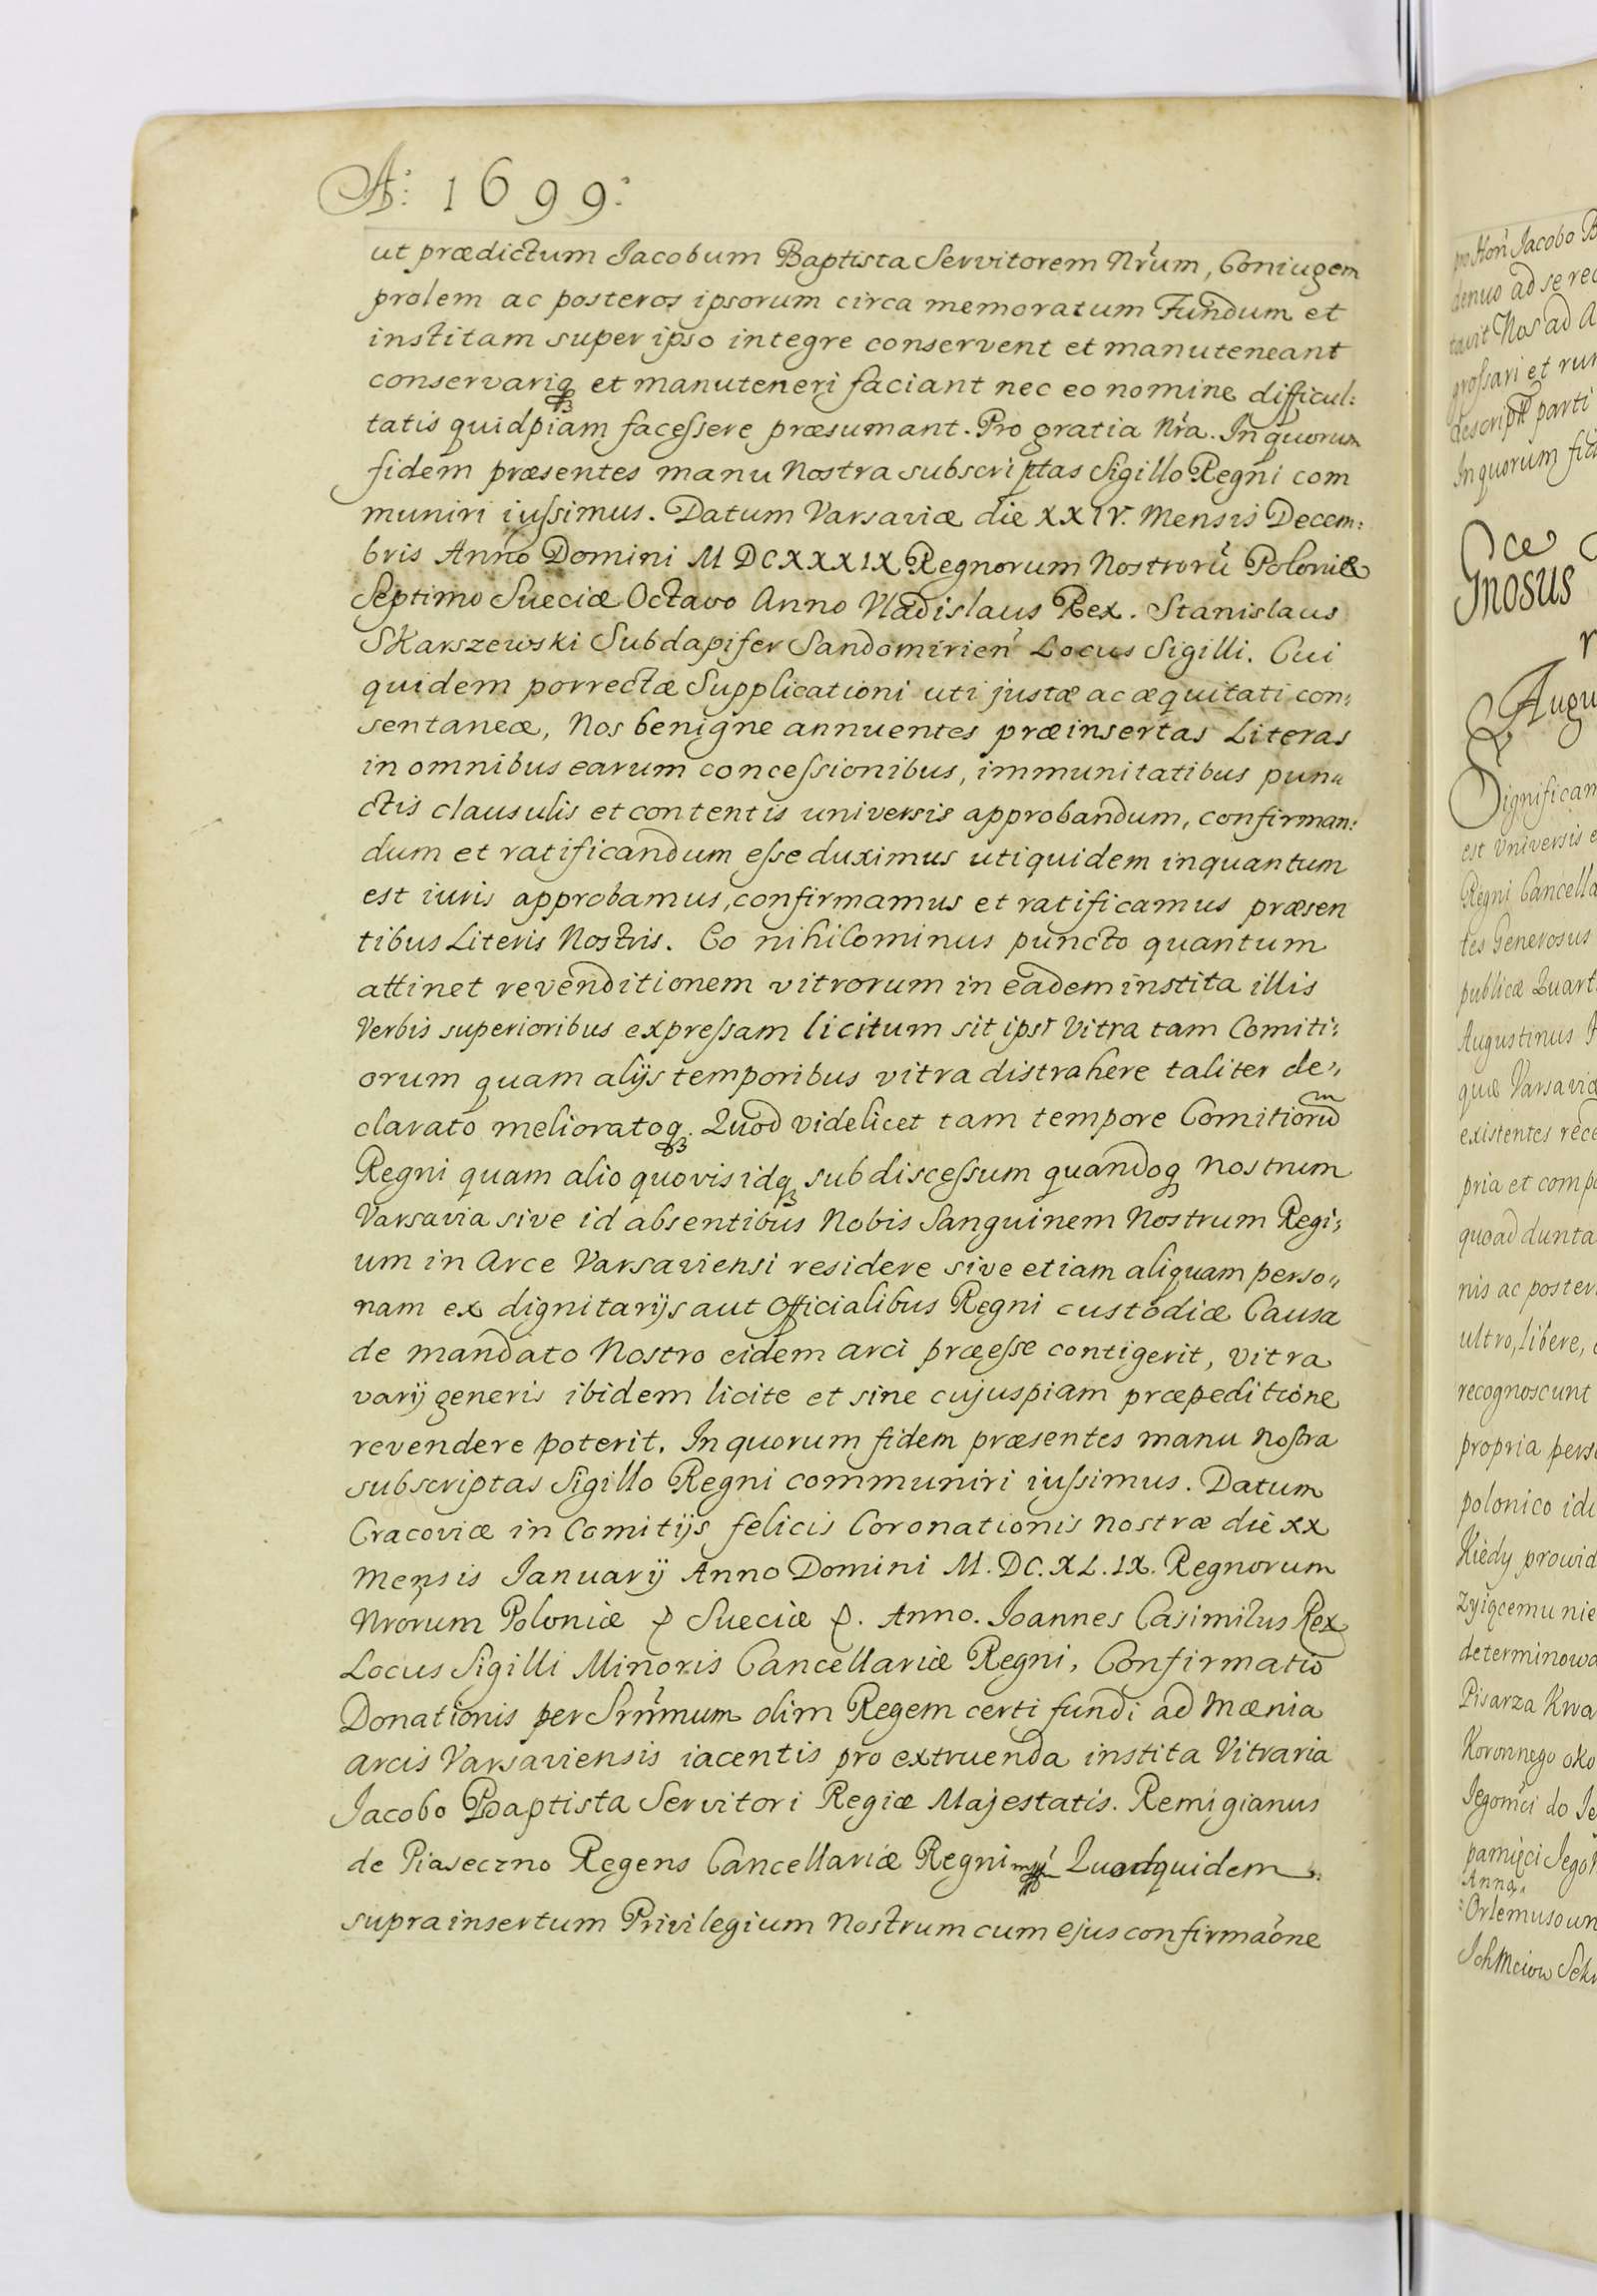 A: 1699:
ut prædictum Jacobum Baptista Servitorem Nr̃um, Coniugem
prolem ac posteros ipsorum circa memoratum Fundum et
institam super ipso integre conservent et manuteneant
conservariq₃ et manuteneri faciant nec eo nomine difficul:
tatis quidpiam faceſsere præsumant. Pro gratia Nr̃a. In quorum
fidem præsentes manu Nostra subscriptas Sigillo Regni com
muniri iuſsimus. Datum Varsaviæ die XXIV. Mensis Decem:
bris Anno Domini MDCXXXIX Regnorum Nostrorũ Poloniæ
Septimo Sueciæ Octavo Anno Vladislaus Rex. Stanislaus
Skarszewski Subdapifer Sandomirien̄ Locus Sigilli. Cui
quidem porrectæ Supplicationi uti justæ ac æquitati con:
sentaneæ, Nos benigne annuentes præinsertas Literas
in omnibus earum conceſsionibus, immunitatibus pun„
ctis clausulis et contentis universis approbandum, confirman:
dum et ratificandum eſse duximus uti quidem inquantum
est iuris approbamus, confirmamus et ratificamus præsen
tibus Literis Nostris. Eo nihilominus puncto quantum
attinet revenditionem vitrorum in eadem instita illis
Verbis superioribus expreſsam licitum sit ipsi Vitra tam Comiti:
orum quam alijs temporibus vitra distrahere taliter de„
clarato melioratoq₃. Quod videlicet tam tempore Comitiorum
Regni quam alio quovis idq₃ sub disceſsum quandoq₃ nostrum
Varsavia sive id absentibus Nobis Sanguinem Nostrum Regi:
um in Arce Varsaviensi residere sive etiam aliquam perso„
nam ex dignitarijs aut Officialibus Regni custodiæ Causa
de mandato Nostro eidem arci præeſse contigerit, vitra
varij generis ibidem licite et sine cujuspiam præpeditione
revendere poterit. In quorum fidem præsentes manu noſtra
subscriptas Sigillo Regni communiri iuſsimus. Datum
Cracoviæ in Comitijs felicis Coronationis nostræ die XX
Mensis Januarij Anno Domini M.DC.XL.IX. Regnorum
Nrorum Poloniæ & Sueciæ &. Anno. Joannes Casimirus Rex
Locus Sigilli Minoris Cancellariæ Regni, Confirmatio
Donationis per Sr̃mum olim Regem certi fundi ad Mænia
arcis Varsaviensis iacentis pro extruenda instita Vitraria
Jacobo Baptista Servitori Regiæ Majestatis. Remigianus
de Piaseczno Regens Cancellariæ Regni Quodquidem
suprainsertum Privilegium Nostrum cum ejus confirmaõne
pro Hon̄ Jacobo B
denuo ad se rec
tavit Nos ad A
groſsari et rur
descripti parti
In quorum fid
Gnosus
Augu
Significam
est Universis e
Regni Cancella
tes Generosus
publicæ Quart
Augustinus
quæ Varsaviæ
existentes rece
pria et comp
quoad dunta
nis ac poster
ultro, libere,
recognoscunt
propria pers
polonico idi
Kiedy prowid
Zyiącemu nie
determinowa
Pisarza Kwa
Koronnego oko
Jegomći do Je
pamięci Jego
Anna